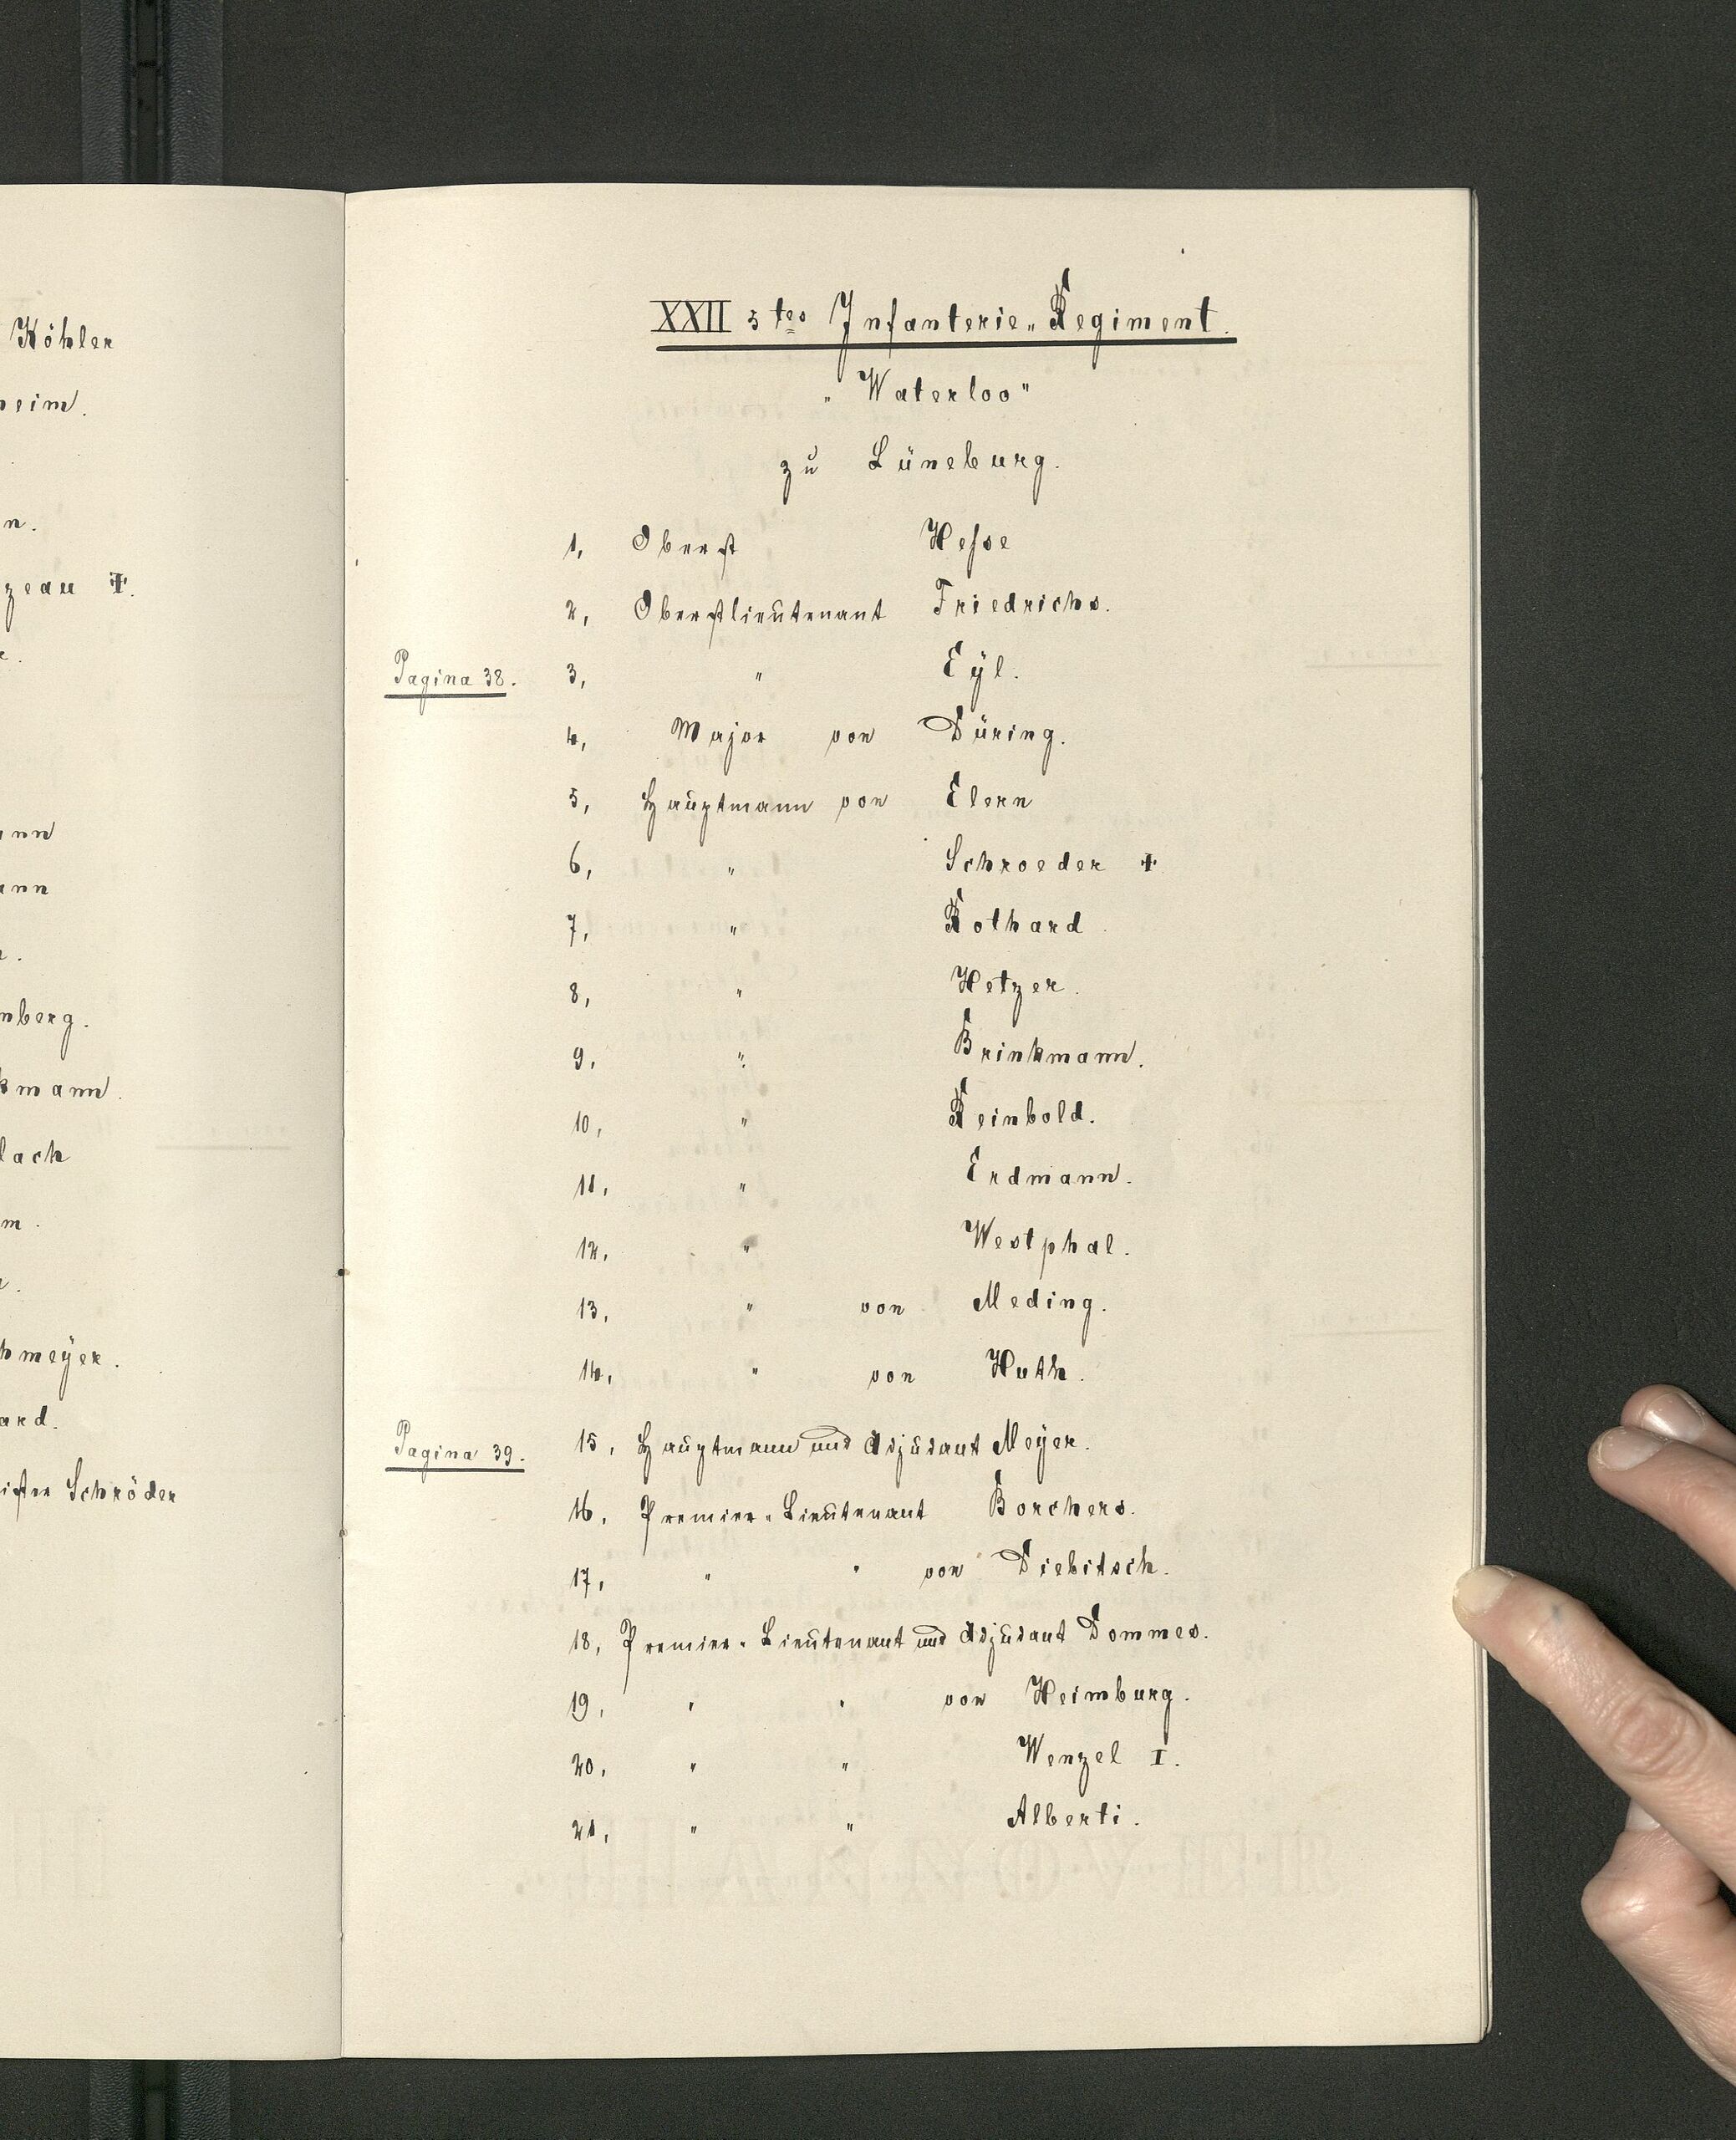 Köhler
eim.
n.
zeau †.
e.
ann
ann
mberg.
kmann.
lach
m.
hmeÿer.
ard.
Schröder
XXII 5tes Infanterie-Regiment.
„Waterloo"
zu Lüneburg.
1, Oberst Hesse
2, Oberstlieutenant Friedrichs.
Pagina 38. 3, " Eÿl.
4, Major von Düring.
5, Hauptmann von Elern
6, " Schroeder †
7, " Rothard.
8, " Hetzer.
9, " Brinkmann.
10, " Reinbold.
11, " Erdmann.
12, " Westphal.
13, " von Meding.
14, " von Huth.
Pagina 39. 15, Hauptmann und Adjudant Meÿer.
16, Premier-Lieutenant Borchers.
17, " " von Diebitsch.
18, Premier-Lieutenant und Adjudant Dommes.
19, " " von Heimburg.
20, " " Wenzel I.
21, " " Alberti.